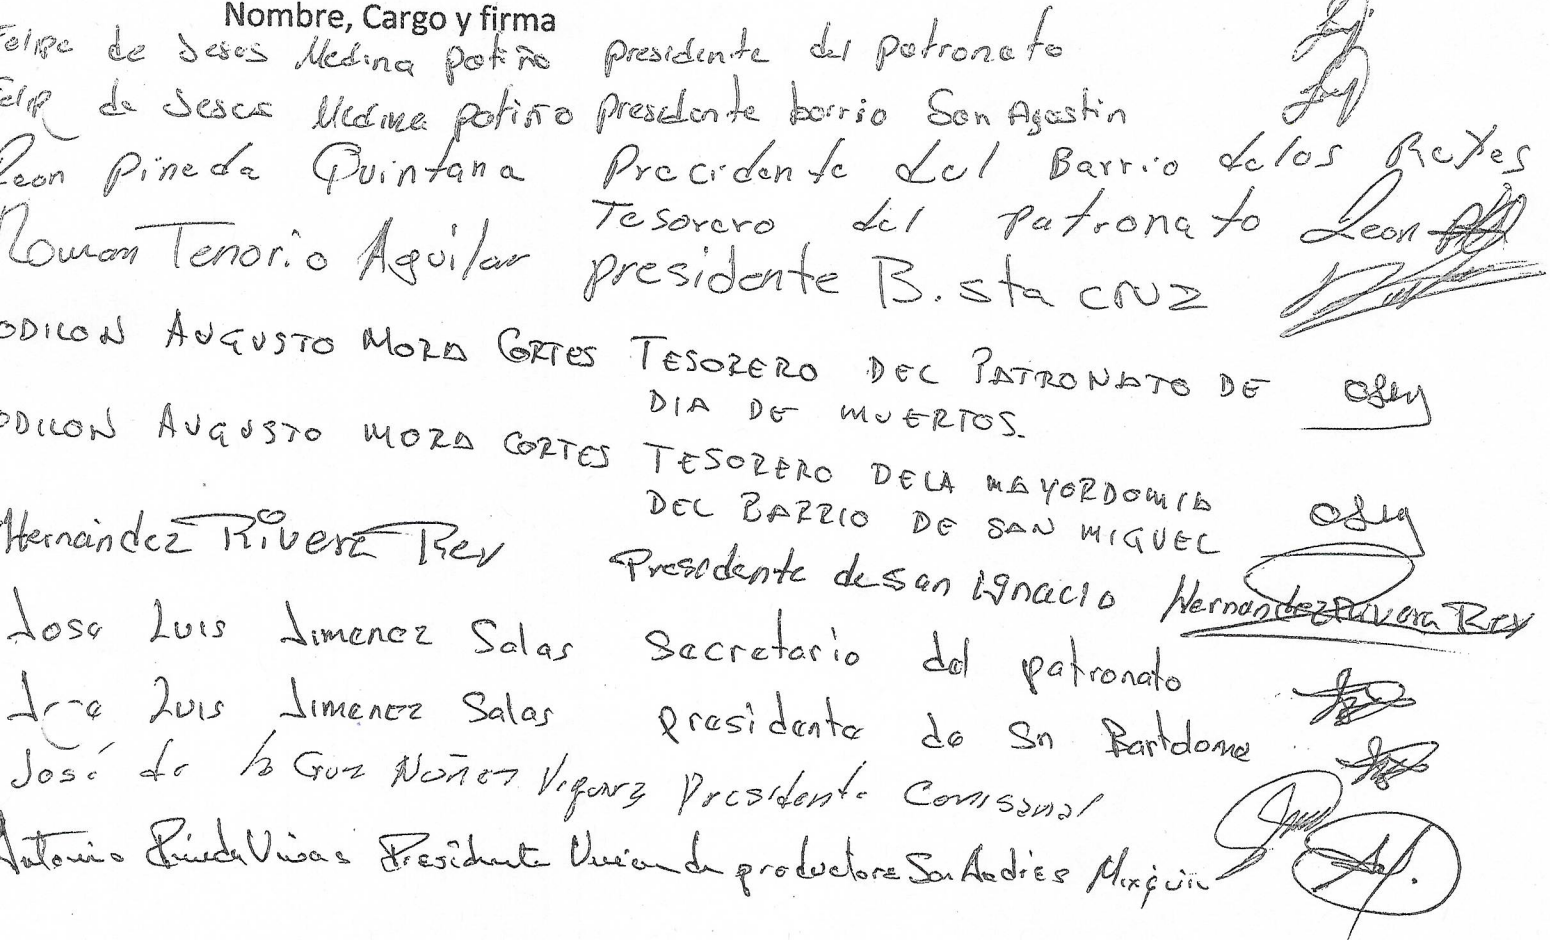 Nombre, Cargo y firma
Felipe de Jesus Medina Patiño presidente del patronato
Felip de Jesus Medina patiño presidente barrio San Agustin
Leon Pineda Quintana Precidente del Barrio delos Reyes
Tesorero del patronato Leon
Roman Tenorio Aguilar presidente B. sta cruz
ODILON AUGUSTO MORA CORTES TESORERO DEL PATRONATO DE
DIA DE MUERTOS.
ODILON AUGUSTO MORA CORTES TESORERO DELA MAYORDOMIA
DEL BARRIO DE SAN MIGUEL
Hernández Rivera Rey Presidente de san Ignacio Hernandez Rivera Rey
Jose Luis Jimenez Salas Secretario del patronato
Jose Luis Jimenez Salas presidente de Sn Bartolome
José de la Cruz Nuñez Presidente Comisarial
Antonio Pineda Presidente Union de productores San Andrés Mixquic